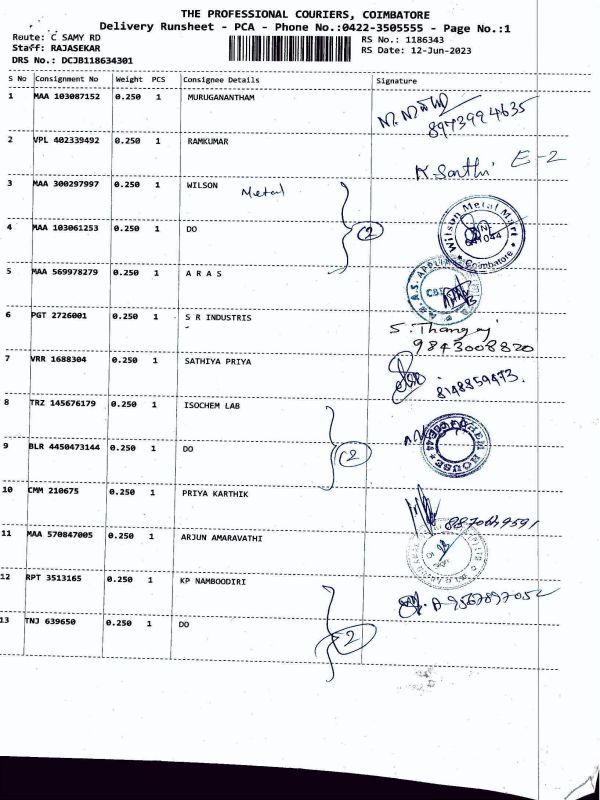 THE PROFESSIONAL COURIERS, COIMBATORE
Delivery Runsheet - PCA - Phone No.:0422-3505555 - Page No.:1
Route: C SAMY RD
RS No.: 1186343
Staff: RAJASEKAR
RS Date: 12-Jun-2023
DRS No.: DCJB118634301
S No Consignment No Weight PCS Consignee Details Signature
1 MAA 103087152 0.250 1 MURUGANANTHAM
8973994635
2 VPL 402339492 0.250 1 RAMKUMAR
K. Santhi E-2
3 MAA 300297997 0.250 1 WILSON Metal
Wilson Metal Mart
Coimbatore
4 MAA 103061253 0.250 1 DO 2
5 MAA 569978279 0.250 1 A R A S
6 PGT 2726001 0.250 1 S R INDUSTRIS
S. Thangaj
9843008820
7 VRR 1688304 0.250 1 SATHIYA PRIYA
8148859473.
8 TRZ 145676179 0.250 1 ISOCHEM LAB
9 BLR 4450473144 0.250 1 DO 2
HOUSE
10 CMM 210675 0.250 1 PRIYA KARTHIK
11 MAA 570847005 0.250 1 ARJUN AMARAVATHI
12 RPT 3513165 0.250 1 KP NAMBOODIRI
13 TNJ 639650 0.250 1 DO 2